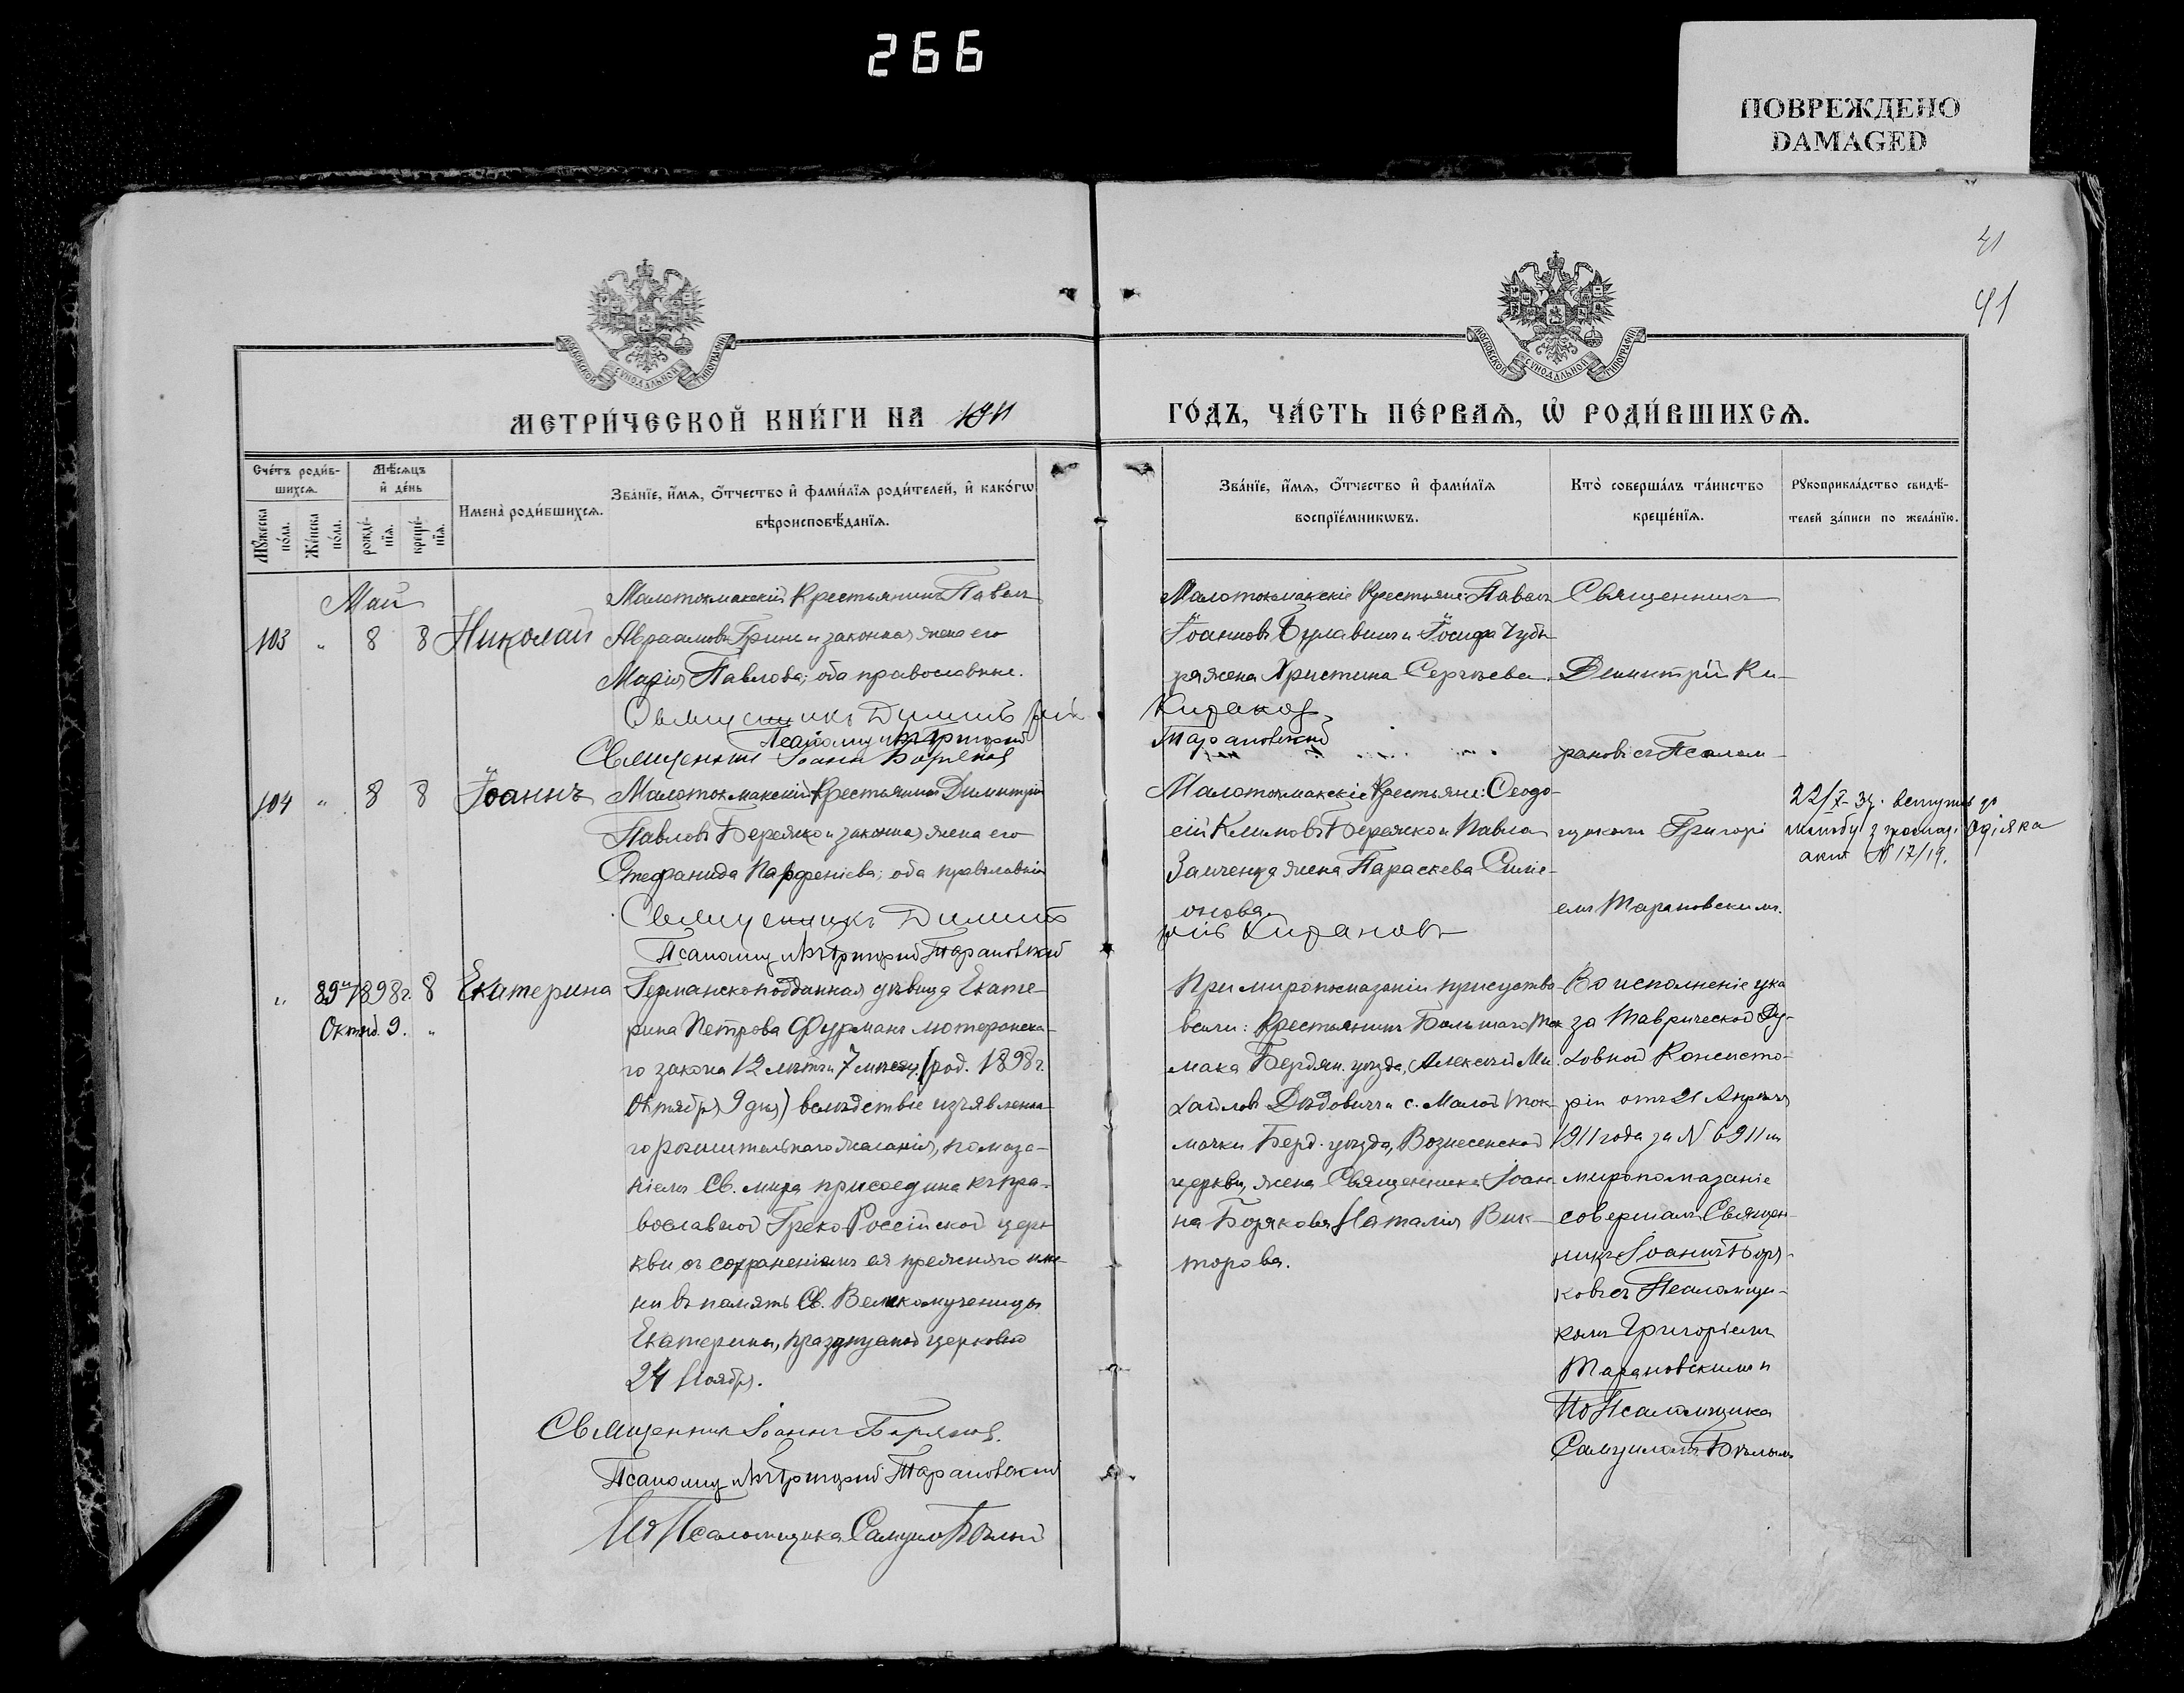 266
ПОВРЕЖДЕНО
DAMAGED
41
41
МОСКОВСКОЙ СѴНОДАЛЬНОЙ ТИПОГРАФІИ
МОСКОВСКОЙ СѴНОДАЛЬНОЙ ТИПОГРАФІИ
МЕТРИ́ЧЕСКОЙ КНИ́ГИ НА 1911
ГО́ДЪ, ЧА́СТЬ ПЕ́РВАѦ, Ѡ҆ РОДИ́ВШИХСѦ.
Сче́тъ роди́в-
шихсѧ.
Мꙋ́жеска по́ла.
Же́нска по́ла.
Мѣ́сѧцъ
и҆ де́нь
рожде́-
нїѧ.
креще́-
нїѧ.
Имена̀ роди́вшихсѧ.
Зва́нїе, и҆́мѧ, ѻ҆́тчество и҆ фами́лїѧ роди́телей, и҆ како́гѡ
вѣроисповѣ́данїѧ.
Зва́нїе, и҆́мѧ, ѻ҆́тчество и҆ фами́лїѧ
воспрїе́мникѡвъ.
Кто̀ соверша́лъ та́инство
креще́нїѧ.
Рꙋкоприкла́дство свидѣ́-
телей за́писи по жела́нїю.
Май
103 " 8 8 Николай
Малотокмакскій Крестьянинъ Павелъ
Авраамовъ Гринь и законная жена его
Марія Павлова; оба православные.
Священникъ Димитрій
Псаломщикъ Григорій
Священникъ Іоаннъ Боряковъ
Малотокмакскіе Крестьяне: Павелъ
Іоанновъ Булавинъ и Іосифа
жена Христина Сергѣева.
Кирановъ
Тарановскій
Священникъ
Димитрій Ки-
рановъ съ Псалом-
104 " 8 8 Іоаннъ
Малотокмакскій Крестьянинъ Димитрій
Павловъ Бережко и законная жена его
Стефанида Парфеніева; оба православные
Священникъ Димит
Псаломщикъ Григорій Тарановскій
Малотокмакскіе Крестьяне: Ѳеодо-
сій Климовъ Бережко и Павла
жена Параскева Симе-
онова.
рій Кирановъ
щикомъ Григорі
емъ Тарановскимъ.
22/X-34. вступив до
шлюбу з
акт N 17/19.
" 89й 1898г. 8 Екатерина
Октяб. 9. "
Германскоподданная дѣвица Екате-
рина Петрова Фурманъ лютеранска-
го закона 12 лѣтъ и 7 мѣсяц. (род. 1898 г.
Октября 9 дня) вслѣдствіе изъявленна-
го рѣшительнаго желанія, помаза-
ніемъ Св. мира присоединена къ пра-
вославной Греко Россійской цер-
кви съ сохраненіемъ ея прежняго име-
ни въ память Св. Великомученицы
Екатерины, празднуемой церковью
24 Ноября.
Священникъ Іоаннъ Боряковъ.
Псаломщикъ Григорій Тарановскій
И д Псаломщика Самуилъ Бѣлый
При миропомазаніи присутство-
вали: Крестьянинъ Большого Ток
мака Бердян. уѣзда, Алексѣй Ми-
хайловъ Дѣдовичъ и с. Малой Ток-
мачки Берд. уѣзда, Вознесенской
церкви, жена Священника Іоан-
на Борякова Наталія Вик-
торова.
Во исполненіе ука
за Таврической Ду-
ховной Консисто-
ріи отъ 21 Апрѣля
1911 года за N 6911 м
миропомазаніе
совершалъ Священ-
никъ Іоаннъ Боря-
ковъ съ Псаломщи-
комъ Григоріемъ
Тарановскимъ и
И д Псаломщика
Самуиломъ Бѣлымъ